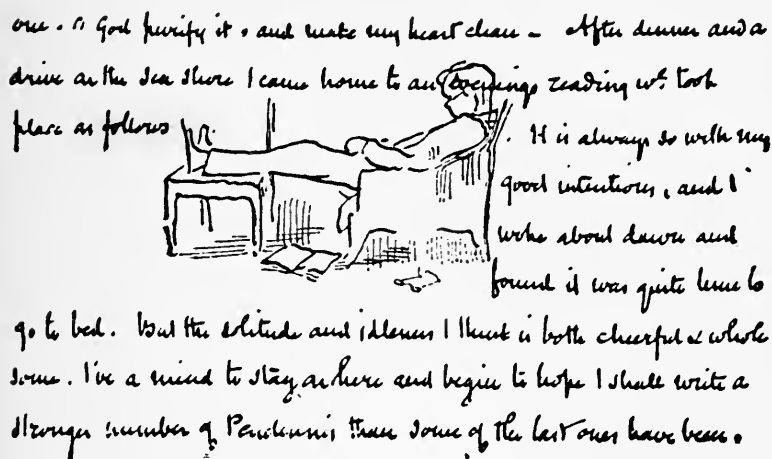 one. O God purify it, and make my heart clean – After dinner and a
drive on the sea shore I came home to an evenings reading wh. took
place as follows
. It is always so with my
good intentions, and I
woke about dawn and
found it was quite time to
go to bed. But the solitude and idleness I think is both cheerful & whole
some. I've a mind to stay on here and begin to hope I shall write a
stronger number of Pendennis than some of the last ones have been.